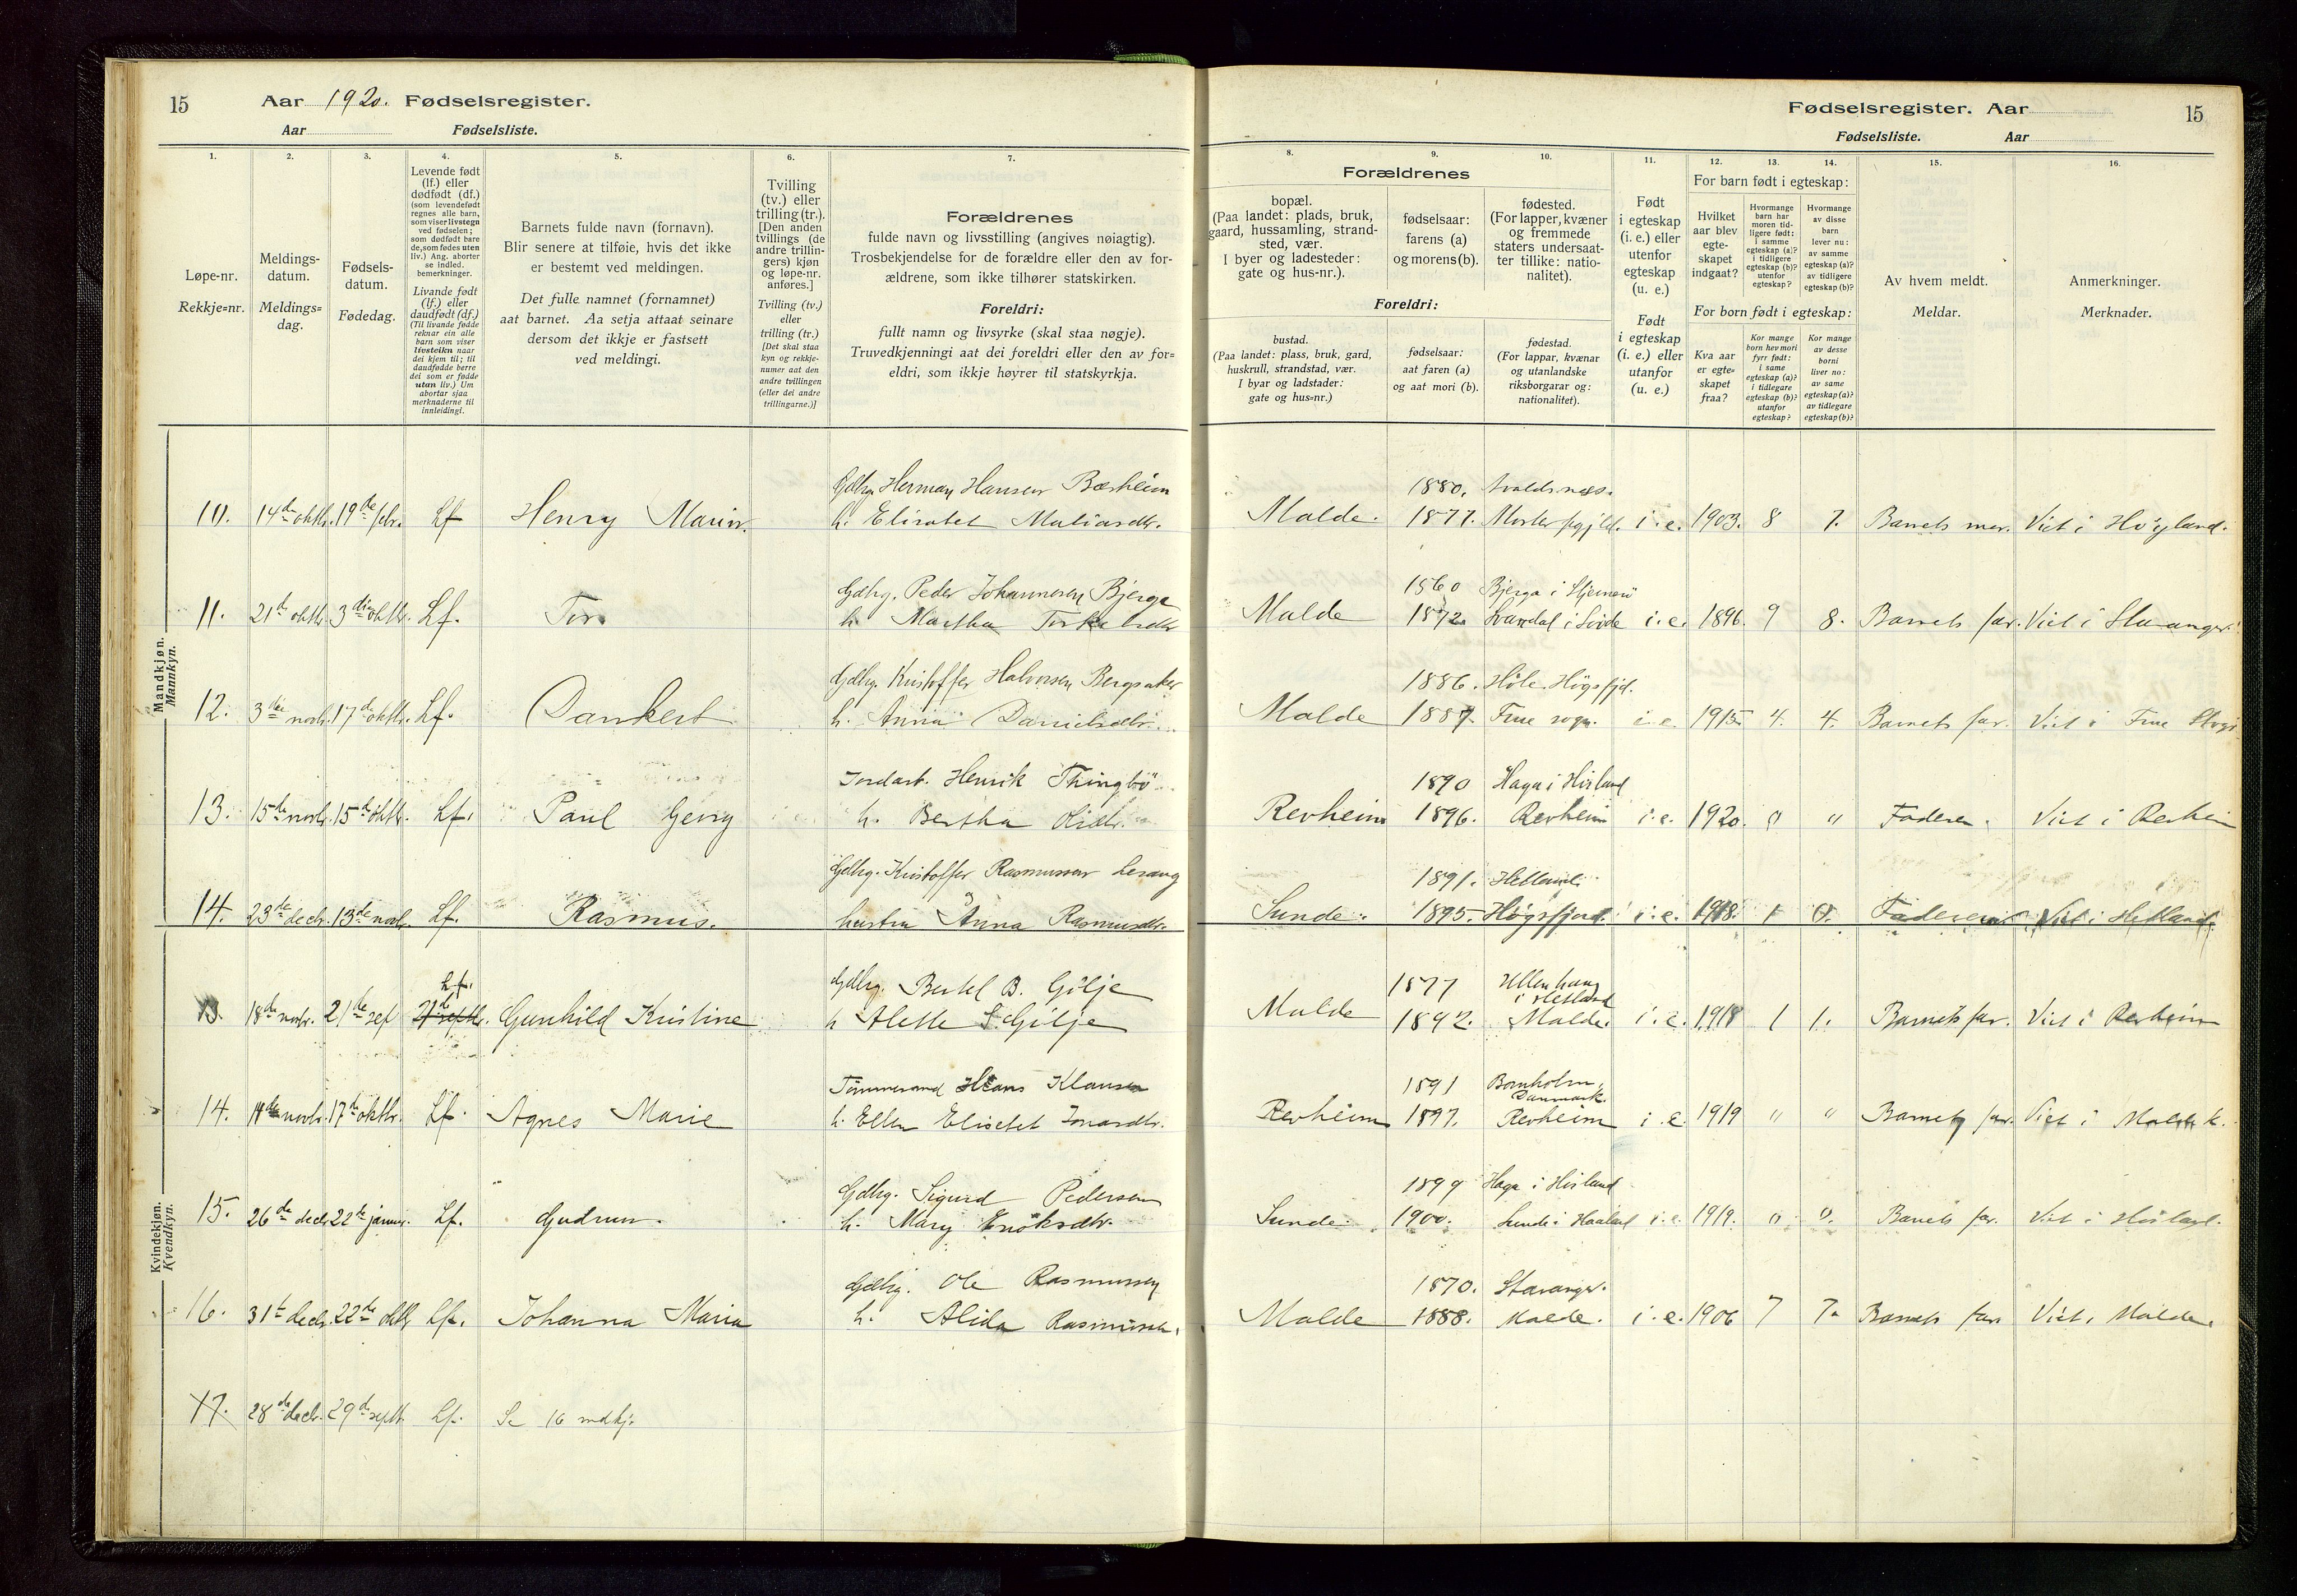 15 Aar 1920. Fødselsregister.
Aar Fødselsliste.
1. 2. 3. 4. 5. 6. 7.
Løpe-nr.
Rekkje=nr.
Meldings-
datum.
Meldings=
dag.
Fødsels-
datum.
Fødedag.
Levende født
(lf.) eller
dødfødt (df.)
(som levendefødt
regnes alle barn,
som viser livstegn
ved fødselen;
som dødfødt bare
de, som fødes uten
liv.) Ang. aborter
se indled.
bemerkninger.
Livande født
(lf.) eller
daudfødt (df.)
(Til livande fødde
reknar ein alle
barn som viser
livsteikn naar
dei kjem til; til
daudfødde berre
dei som er fødde
utan liv.) Um
abortar sjaa
merknaderne til
innleidingi.
Barnets fulde navn (fornavn).
Blir senere at tilføie, hvis det ikke
er bestemt ved meldingen.
Det fulle namnet (fornamnet)
aat barnet. Aa setja attaat seinare
dersom det ikkje er fastsett
ved meldingi.
Tvilling
(tv.) eller
trilling (tr.).
[Den anden
tvillings (de
andre trillin-
gers) kjøn
og løpe-nr.
anføres.]
Tvilling (tv.)
eller
trilling (tr.)
[Det skal staa
kyn og rekkje-
numer aat den
andre tvillingen
(eller dei andre
trillingarne.)]
Forældrenes
fulde navn og livsstilling (angives nøiagtig).
Trosbekjendelse for de forældre eller den av for-
ældrene, som ikke tilhører statskirken.
Foreldri:
fullt namn og livsyrke (skal staa nøgje).
Truvedkjenningi aat dei foreldri eller den av for=
eldri, som ikkje høyrer til statskyrkja.
Mandkjøn.
Mannkyn.
10. 14de oktbr. 19de febr. Lf Henry Marin. Gdbg. Herman Hansen Bærheim
h. Elisabet Matiasdtr.
11. 21de oktbr. 3die oktbr. Lf. Tor. Gdbg. Peder Johannesen Bjerga
h. Martha
12. 3die novbr. 17de oktbr. Lf. Dankert Gdbg. Kristoffer Halvorsen Bergsaker
h. Anna Danielsdtr.
13. 15de novbr. 15de oktbr. Lf. Paul Georg Jordarb. Henrik Thingbö
h. Bertha
14. 23de decbr. 13de novbr. Lf. Rasmus. Gdbg. Kristoffer Rasmussen
hustru Anna Rasmusdtr.
Kvindekjøn.
Kvendkyn.
13. 18de novbr. 21de sep Lf. Gunhild Kristine Gdbg. Bertel B. Gilje
h Alette S. Gilje
14. novbr. 17de oktbr. Lf. Agnes Marie Tömmermand Hans Klausen
h. Ellen Elisebet
15. 26de decbr. 22de januar. Lf. Gudrun. Gdbg. Sigurd Pedersen
h. Mary Enoksdtr.
16. 31te decbr. 22de oktbr Lf. Johanna Maria Gdbg. Ole Rasmussen
h. Alida Rasmussen.
17. 28de decbr. 29de septbr. Lf. Se 16 mdkj.
Fødselsregister. Aar 15
Fødselsliste. Aar
8. 9. 10. 11. 12. 13. 14. 15. 16.
Forældrenes
bopæl.
(Paa landet: plads, bruk,
gaard, hussamling, strand-
sted, vær.
I byer og ladesteder:
gate og hus-nr.).
fødselsaar:
farens (a)
og morens (b).
fødested.
(For lapper, kvæner
og fremmede
staters undersaat-
ter tillike: natio-
nalitet).
Foreldri:
bustad.
(Paa landet: plass, bruk, gard,
huskrull, strandstad, vær.
I byar og ladstader:
gate og hus=nr.)
fødselsaar:
aat faren (a)
og aat mori (b).
fødestad.
(For lappar, kvænar
og utanlandske
riksborgarar og:
nationalitet).
Født
i egteskap
(i. e.) eller
utenfor
egteskap
(u. e.)
Født
i egteskap
(i. e.) eller
utanfor
(u. e.)
For barn født i egteskap:
Hvilket
aar blev
egte-
skapet
indgaat?
Hvormange
barn har
moren tid-
ligere født:
i samme
egteskap (a)?
i tidligere
egteskap (b)?
utenfor
egteskap?
Hvormange
av disse
barn
lever nu:
av samme
egteskap (a)?
av tidligere
egteskap (b)?
For born født i egteskap:
Kva aar
er egte=
skapet
fraa?
Kor mange
born hev mori
fyrr født:
i same
egteskap (a)?
i tidlegare
egteskap (b)?
utanfor
egteskap?
Kor mange
av desse
borni
liver no:
av same
egteskap (a)?
av tidlegare
egteskap (b)?
Av hvem meldt.
Meldar.
Anmerkninger.
Merknader.
1880. Avaldsnes.
Malde. 1877. i. e. 1903. 8 7. Barnets mor. Viet i Höyland.
1860 Bjerga i Stjernerö
Malde 1872. i. e. 1896. 9 8. Barnets far. Viet i Stavanger.
1886. Höle. Högsfjd.
Malde 1887. Frue sogn. i. e. 1915 4. 4. Barnets far. Viet i Frue
1890 Haga i
Revheim 1896. Revheim i. e. 1920. 0 " Faderen. Viet i Revheim
1891. Hetland.
Sunde. 1895. Høgsfjord. i. e. 1918. 1 0. Faderen Viet i Hetland.
1877 i Hetland
Malde 1892. Malde. i. e. 1918 1 1. Barnets far. Viet i Revheim
1891 Bornholm,
Danmark.
Revheim 1897. Revheim i. e. 1919 " " Barnets far. Viet i
1899 Haga i
Sunde. 1900. Sunde i i. e. 1919. 0 0. Barnets far. Viet i
1870. Stavanger.
Malde 1888. Malde. i. e. 1906 7 7. Barnets far Viet i Malde.